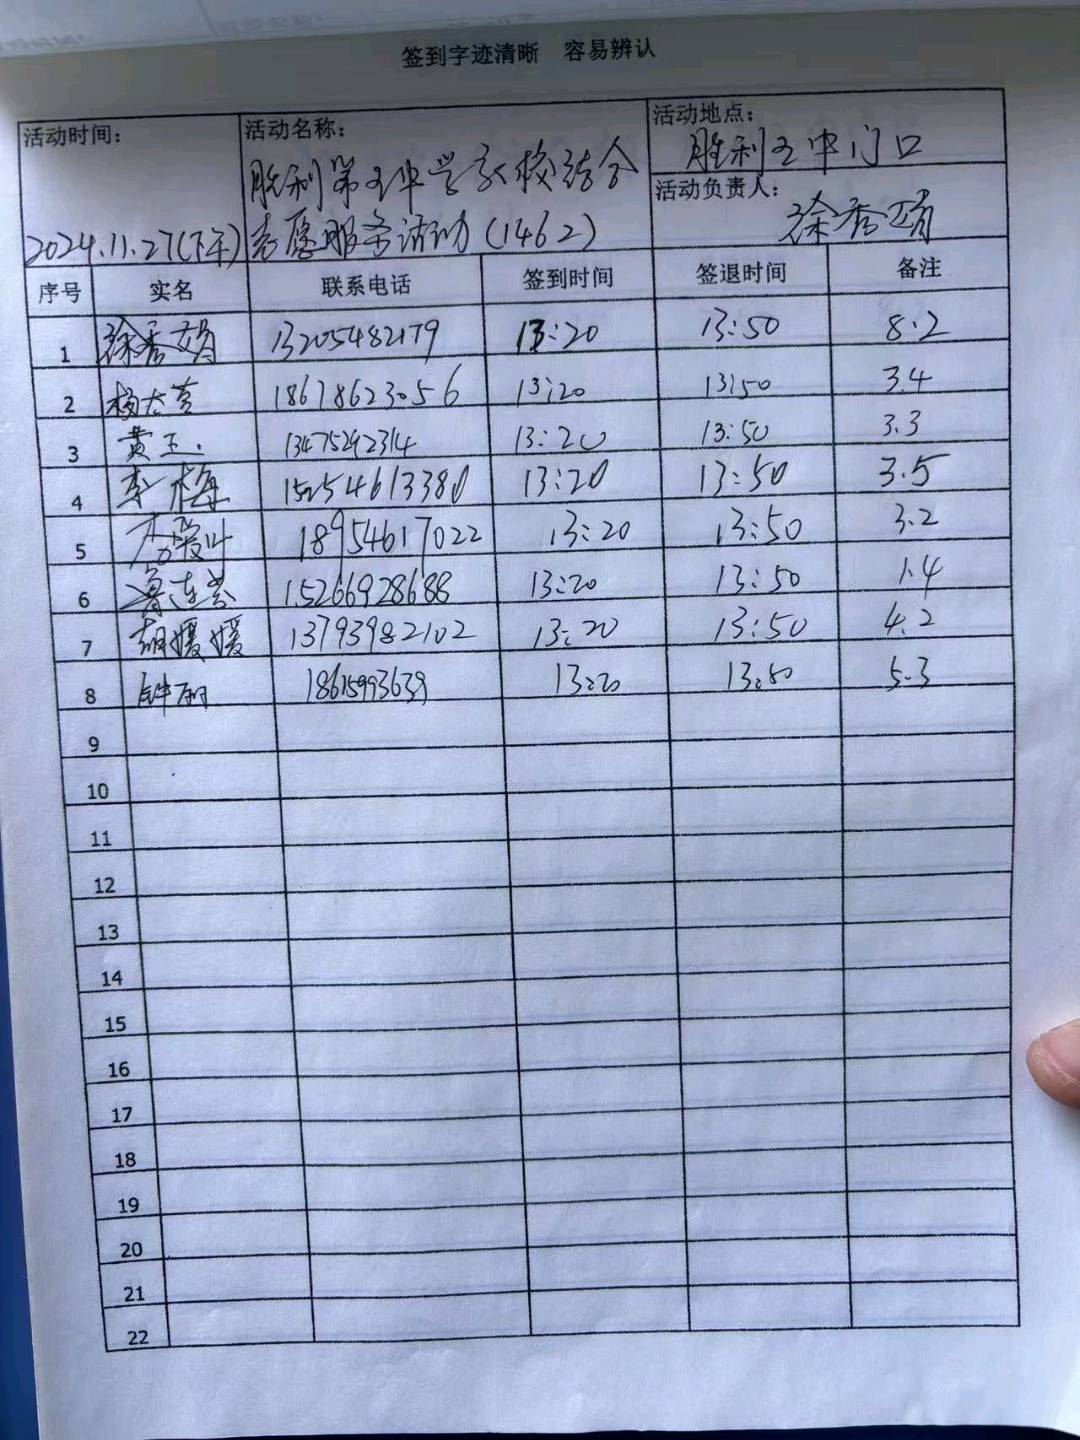 签到字迹清晰 容易辨认
活动时间： 活动名称： 活动地点：
胜利五中门口
胜利第五中学家校结合
活动负责人：
2024.11.27(下午) 志愿服务活动(1462) 徐秀娟
序号 实名 联系电话 签到时间 签退时间 备注
1 徐秀娟 13205482179 13:20 13:50 8.2
2 18678623056 13:20 13:50 3.4
3 黄玉 13475292314 13:20 13:50 3.3
4 李梅 15254613380 13:20 13:50 3.5
5 18954617022 13:20 13:50 3.2
6 15266928688 13:20 13:50 1.4
7 胡媛媛 13793982102 13:20 13:50 4.2
8 钟丽 18615993639 13:20 13:50 5.3
9
10
11
12
13
14
15
16
17
18
19
20
21
22